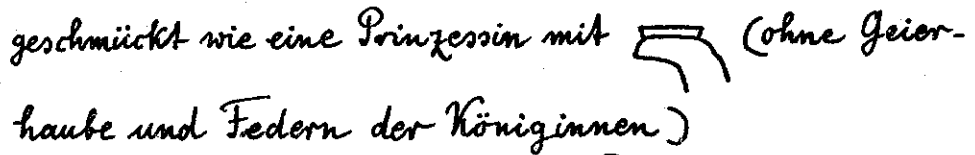 geschmückt wie eine Prinzessin mit (ohne Geier-
haube und Federn der Königinnen)